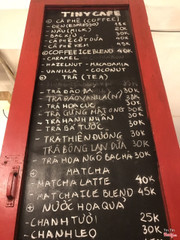 TINY CAFE
CÀ PHÊ (COFFEE)
- ĐEN (ESPRESSO)
- NÂU (MILK) 30K
- BẠC XỈU 30K
- CÀ PHÊ CỐT DỪA 45K
- CÀ PHÊ KEM 45K
COFFEE ICE BLEND 40K
- CARAMEL
- HAZELNUT - MACADAMIA
- VANILLA - COCONUT
TRÀ (TEA)
- TRÀ ĐÀO 30K
- TRÀ HOA CÚC 30K
- TRÀ GỪNG MẬT ONG 30K
- TRÀ HẠNH NHÂN 30K
- TRÀ BÁ TƯỚC 30K
- TRÀ THIÊN ĐƯỜNG 30K
- TRÀ BỒNG LAN DỨA 30K
- TRÀ HOA NGÔ BẠC HÀ 30K
MATCHA
- MATCHA LATTE 40K
- MATCHA ICE BLEND 45K
NƯỚC HOA QUẢ
- CHANH TƯƠI 25K
- CHANH LEO 30K